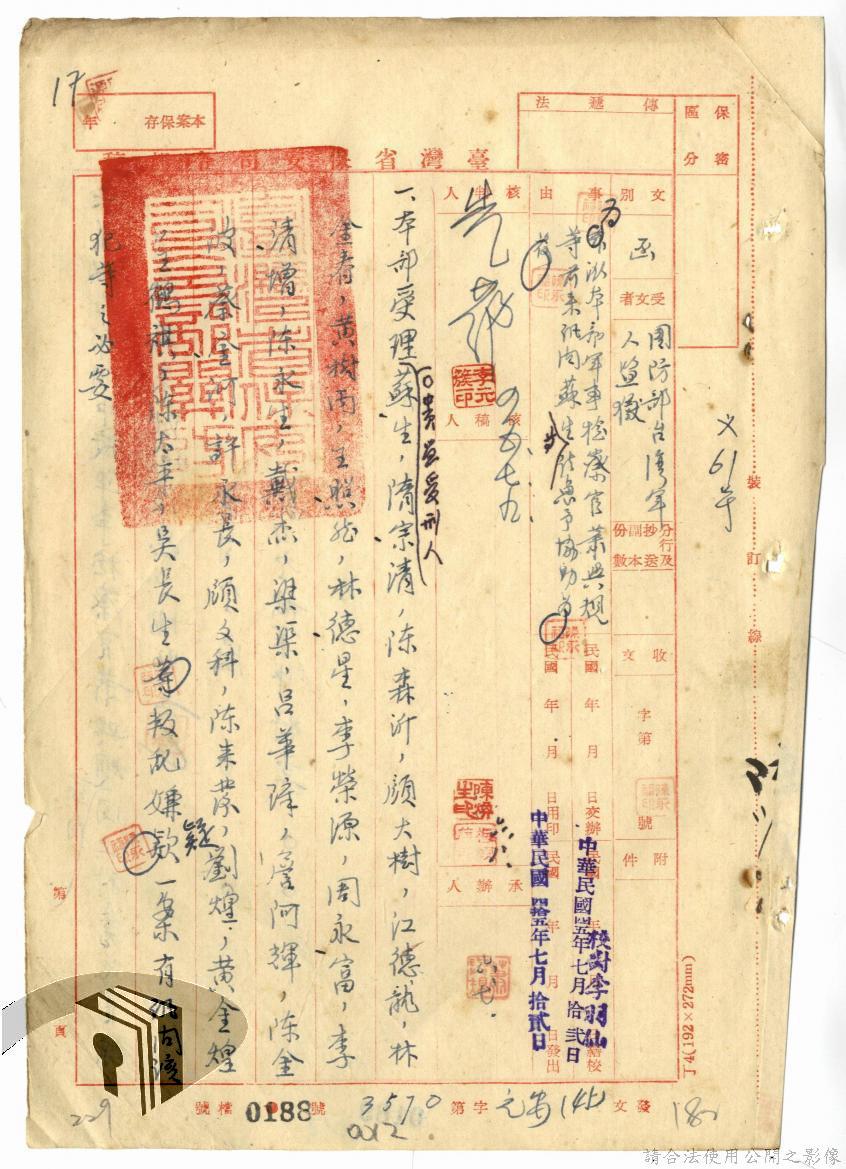 保密區分
傳遞法
本案保存 年
臺灣省保安司令部 稿
文別 函
受文者 國防部台灣軍人監獄
分行及抄送副本份數
收文 字第 號
附件
事由 為派本部軍事檢察官葉典規等前來訊問蘇生等請惠予協助
核判人
李元簇印
核稿人
承辦人
民國 年 月 日交辦
民國 年 月 日用印
中華民國四五年七月拾弍日
中華民國四拾五年七月拾貳日
校對李羽仙
一、本部受理貴監受刑人蘇生,隋宗清,陳森沂,顏大樹,江德龍,林
金壽,黃樹丙,王照然,林德星,李榮源,周永富,李
清增,陳永生,戴杰,梁渠,呂華璋,詹阿輝,陳金
波,蔡金河,許永長,顧文科,陳来發,劉煌,黃金煌
王鶴祺,陳太平,吳長生等叛乱嫌疑一案有訊問該
犯等之必要
裝
訂
線
第 頁
發文 (45) 安元 字第 3570 號 檔號 0188
0012
丁4(192×272mm)
17
229
182
請合法使用公開之影像